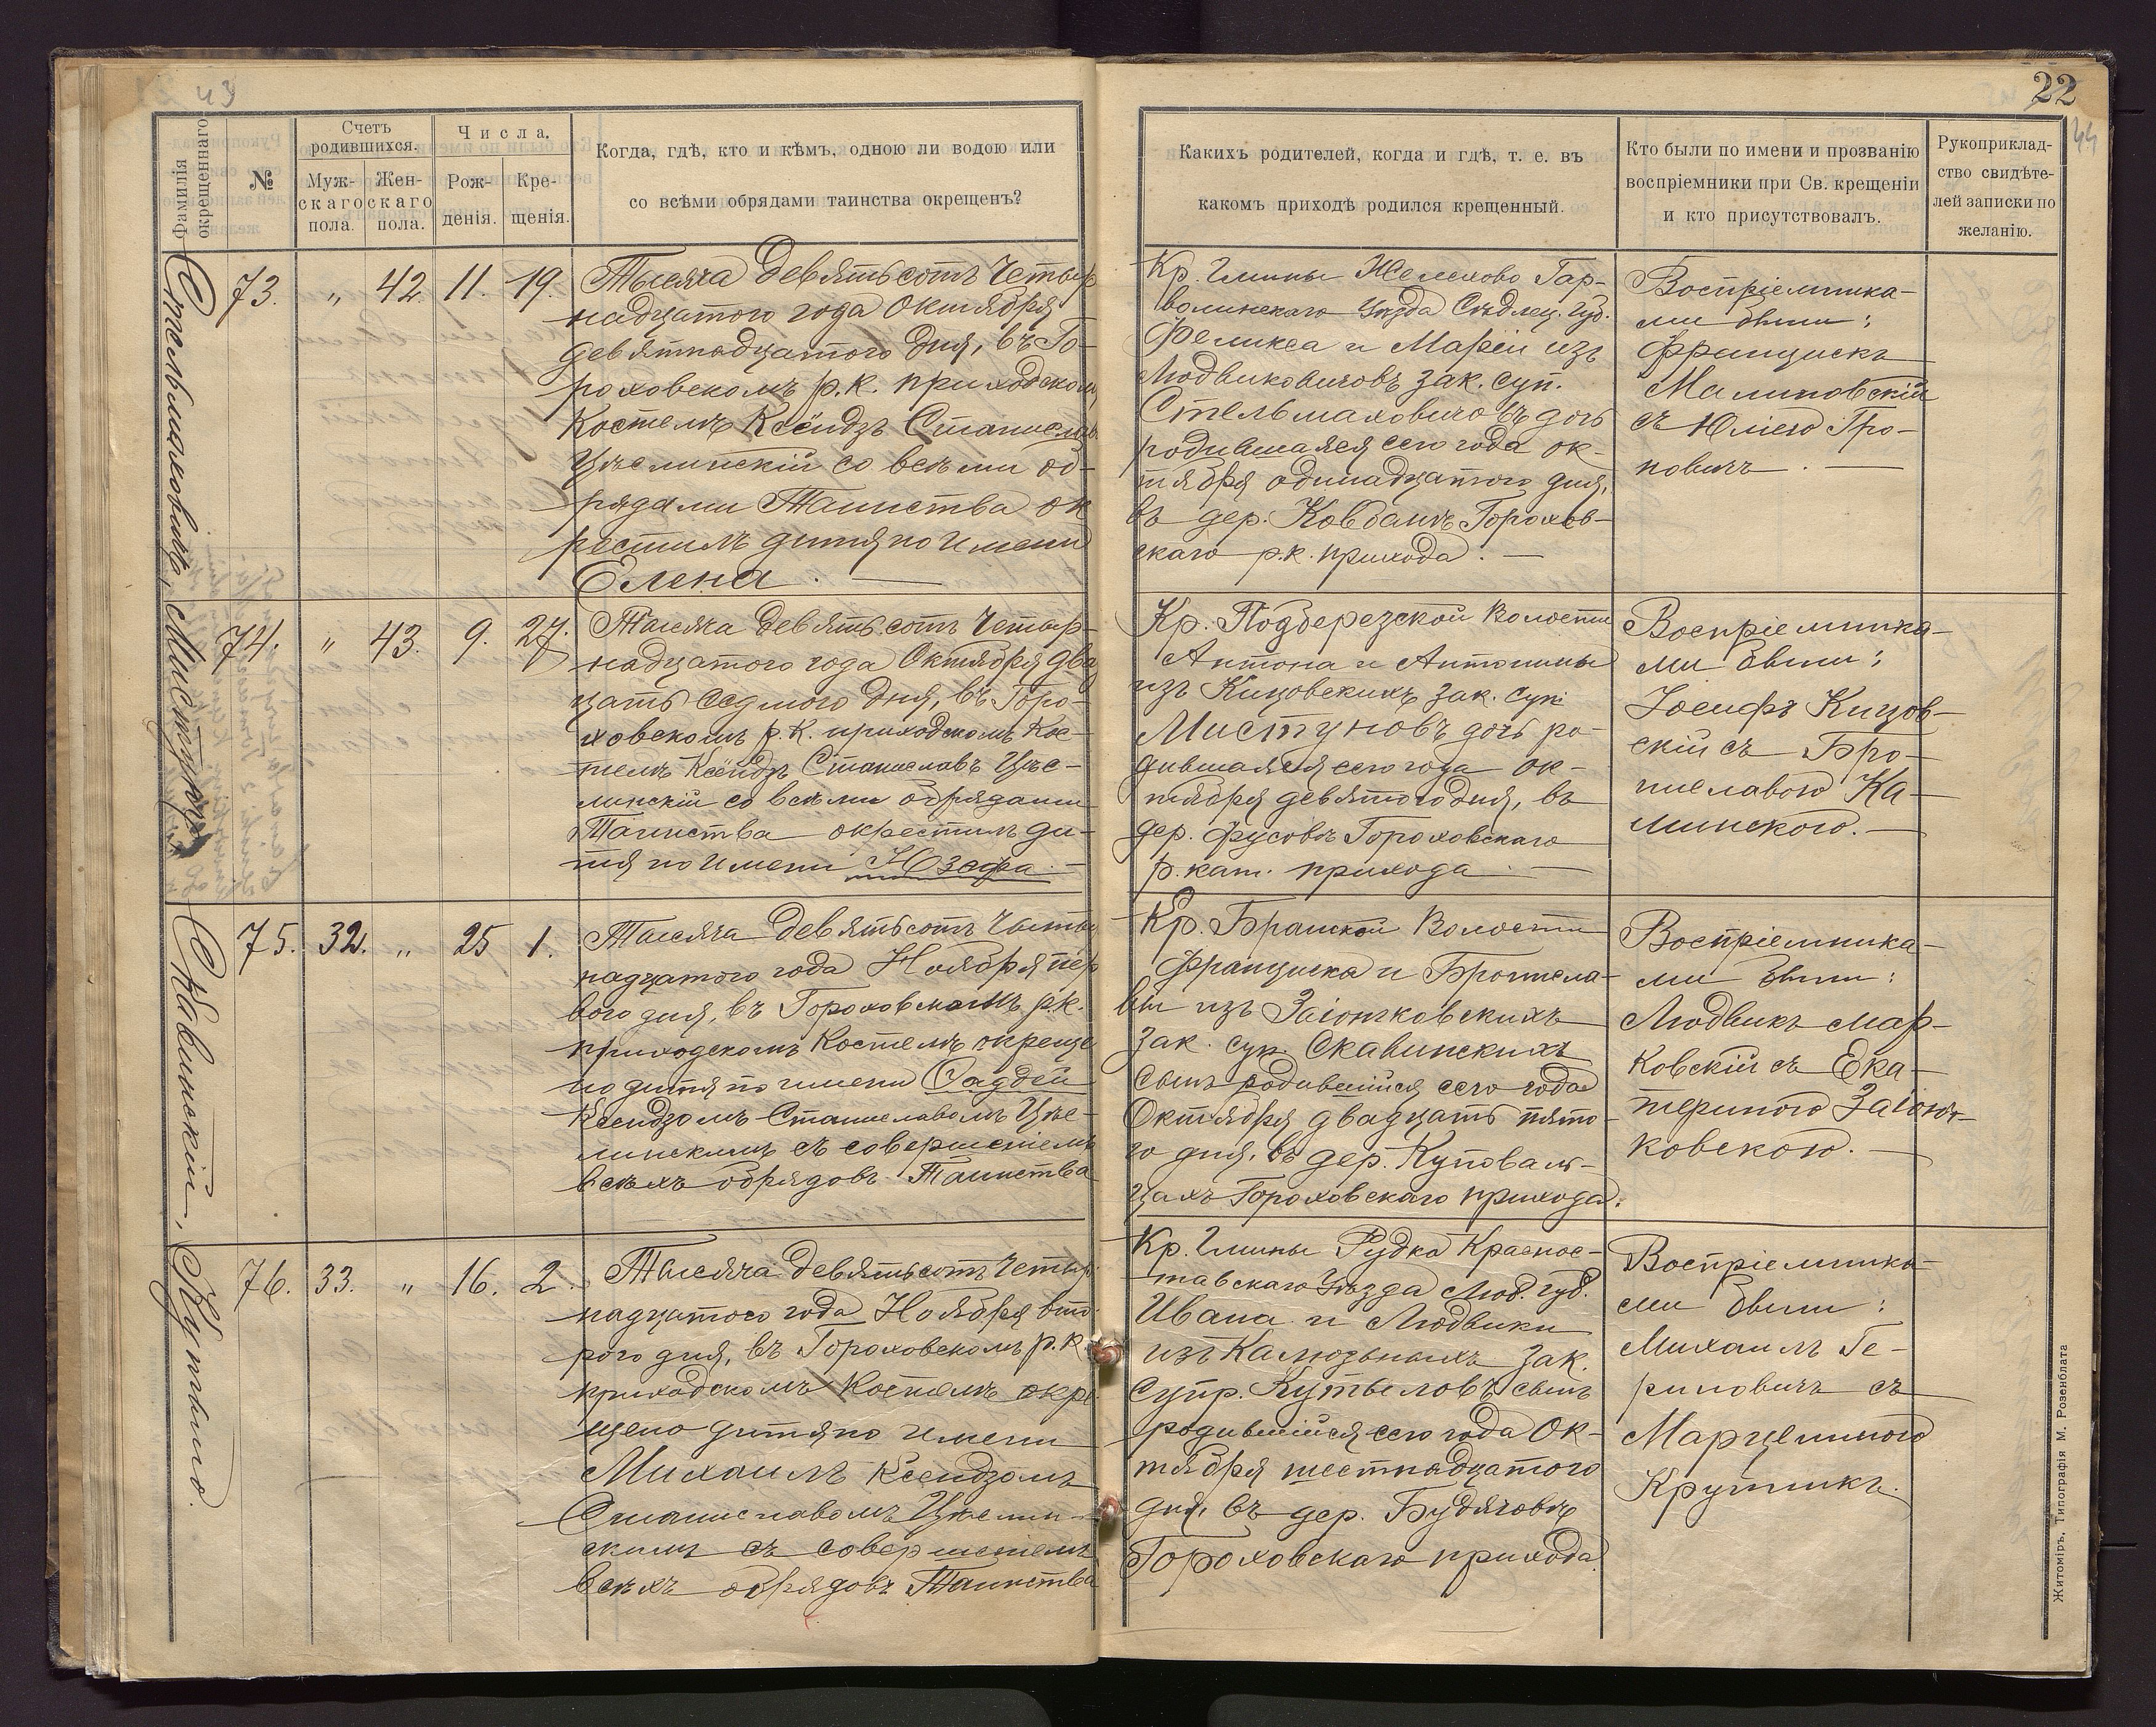 43
22
44
Фамилія окрещеннаго
№
Счетъ родившихся.
Мужскаго пола.
Женскаго пола.
Числа.
Рожденія.
Крещенія.
Когда, гдѣ, кто и кѣмъ, одною ли водою или
со всѣми обрядами таинства окрещенъ?
Какихъ родителей, когда и гдѣ, т. е. въ
какомъ приходѣ родился крещенный.
Кто были по имени и прозванію
воспріемники при Св. крещеніи
и кто присутствовалъ.
Рукоприклад-
ство свидѣте-
лей записки по
желанію.
Стельмаховичъ,
73. „ 42. 11. 19.
Тысяча девятьсотъ четыр
надцатого года Октября
девятнадцатого дня, въ Го-
роховскомъ р.к. приходском
Костелѣ Ксёндзъ Станислав
Цѣслинскій со всѣми об-
рядами Таинства ок
рестилъ дитя по имени
Елена. —
Кр. Гмины Желехово Гар-
волинскаго Уѣзда Сѣдлец. Губ.
Феликса и Маріи изъ
Людвиковичовъ зак. суп.
Стельмаховичовъ дочь
родившаяся сего года ок-
тября одинадцатого дня,
въ дер. Ковбанѣ Горохов-
скаго р.к. прихода. —
Воспріемника-
ми были:
Францискъ
Малиновскій
съ Юліею Гро-
новичъ. —
Мистура
74. „ 43. 9. 27.
Тысяча девятьсотъ четыр-
надцатого года Октября два
цать седмого дня, въ Горо-
ховскомъ р.к. приходскомъ Кос-
телѣ Ксёндзъ Станиславъ Цѣс-
линскій со всѣми обрядами
Таинства окрестилъ ди-
тя по имени Юзефа. —
Кр. Подберезской Волости
Антона и Антонины
изъ Кицовскихъ зак. суп.
Мистуновъ дочь ро-
дившаяся сего года ок-
тября девятого дня, въ
дер. Фусовъ Гороховскаго
р. кат. прихода. —
Воспріемника-
ми были:
Іосифъ Кицов-
скій съ Бро-
ниславою Ка-
минскою. —
Скавинскій,
75. 32. „ 25 1.
Тысяча девятьсотъ четы
надцатого года Ноября пер
вого дня, въ Гороховскомъ р.к.
приходскомъ Костелѣ окреще
но дитя по имени Фаддей
Ксендзомъ Станиславомъ Цѣс-
линскимъ съ совершеніемъ
всѣхъ обрядовъ Таинства
Кр. Бранской Волости
Франциска и Бронисла-
вы изъ Заіончковскихъ
зак. суп. Скавинскихъ
сынъ родившійся сего года
Октября двадцать пято-
го дня, въ дер. Куповаль-
цахъ Гороховскаго прихода.
Воспріемника-
ми были:
Людвикъ Мар-
ковскій съ Ека-
териною Заіонч-
ковскою. —
Кутыло.
76. 33. „ 16. 2.
Тысяча девятьсотъ четыр
надцатого года Ноября вто
рого дня, въ Гороховскомъ р.к.
приходскомъ Костелѣ окре
щено дитя по имени
Михаилъ Ксендзомъ
Станиславомъ Цѣслин-
скимъ съ совершеніемъ
всѣхъ обрядовъ Таинства
Кр. Гмины Рудка Краснос-
тавскаго Уѣзда Люб. губ.
Ивана и Людвики
изъ Калюзьныхъ зак.
Супр. Кутыловъ сынъ
родившійся сего года Ок-
тября шестнадцатого
дня, въ дер. Будятовѣ
Гороховскаго прихода
Воспріемника-
ми были:
Михаилъ Ге-
риновичъ съ
Марцелиною
Крутикъ.
Житоміръ, Типографія М. Розенблата